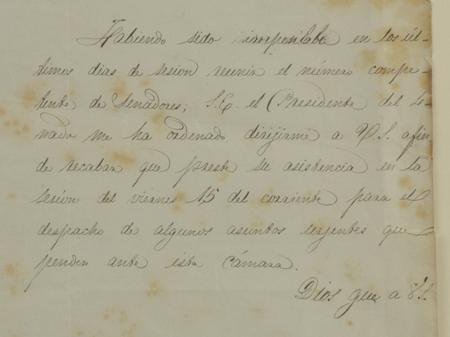 Habiendo sido imposible en los úl-
timos dias de sesion reunir el número compe-
tente de Senadores, S.E. el Presidente del Se-
nado me ha ordenado dirijirme a V.S. a fin
de recabar que preste su asistencia en la
sesion del viernes 15 del corriente para el
despacho de algunos asuntos urjentes que
penden ante esta Cámara.
Dios gue a V.S.